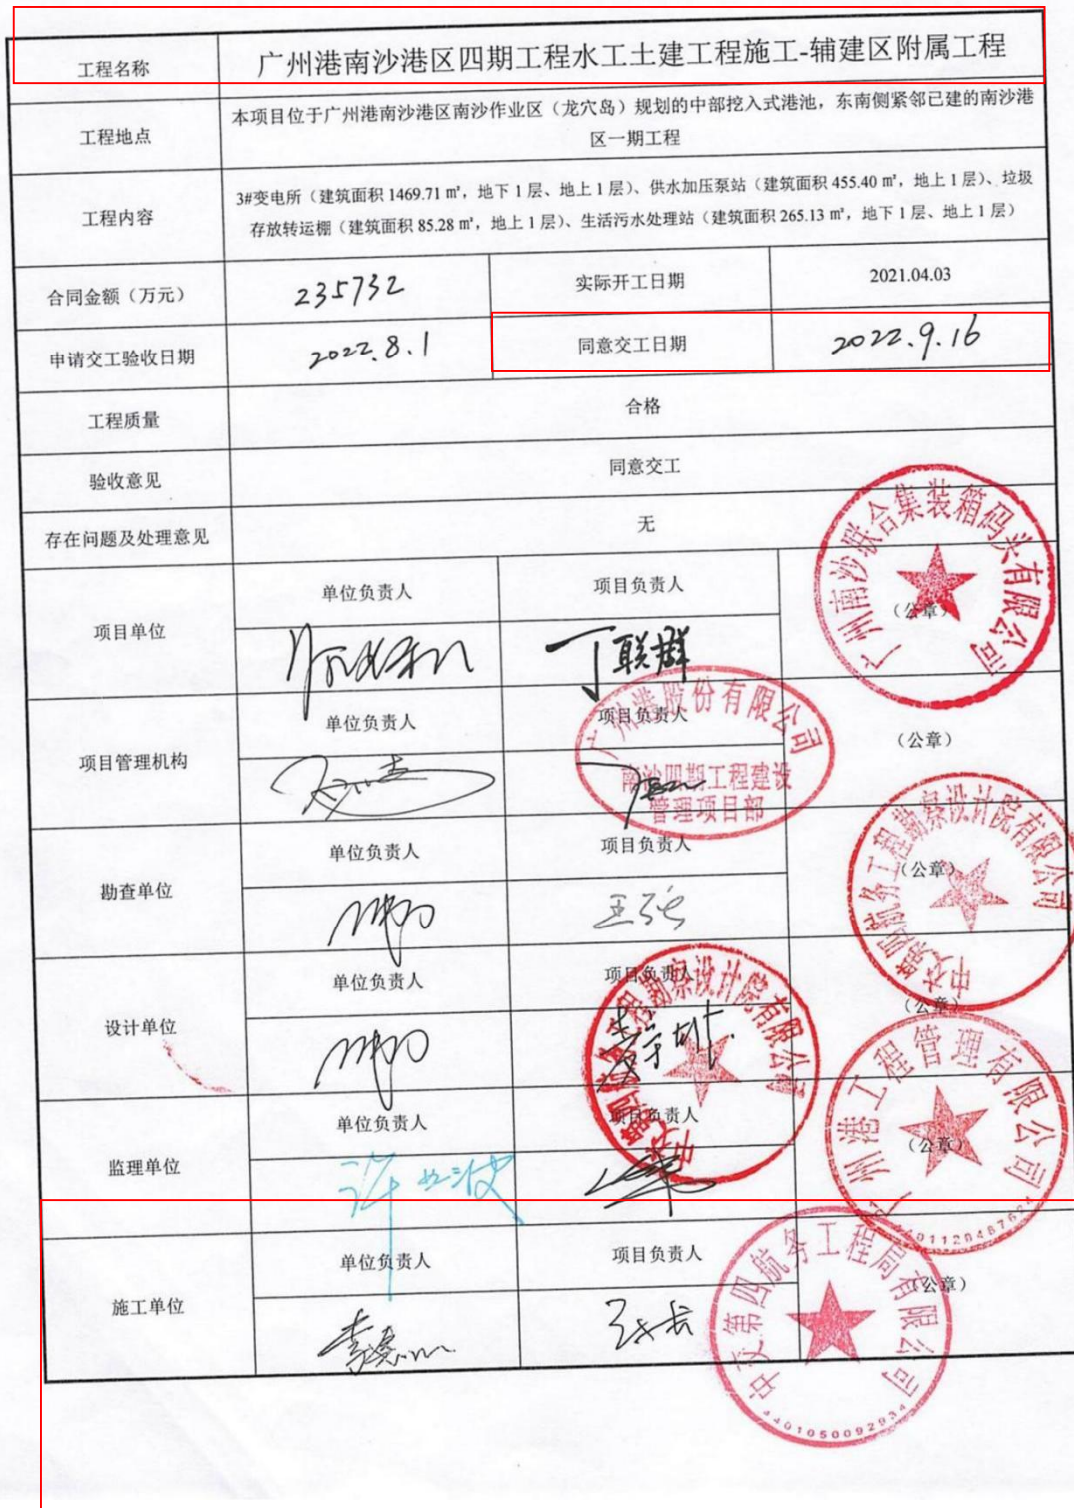 工程名称
广州港南沙港区四期工程水工土建工程施工-辅建区附属工程
工程地点
本项目位于广州港南沙港区南沙作业区（龙穴岛）规划的中部挖入式港池，东南侧紧邻已建的南沙港
区一期工程
工程内容
3#变电所（建筑面积 1469.71 ㎡，地下 1 层、地上 1 层）、供水加压泵站（建筑面积 455.40 ㎡，地上 1 层）、垃圾
存放转运棚（建筑面积 85.28 ㎡，地上 1 层）、生活污水处理站（建筑面积 265.13 ㎡，地下 1 层、地上 1 层）
合同金额（万元）
235732
实际开工日期
2021.04.03
申请交工验收日期
2022.8.1
同意交工日期
2022.9.16
工程质量
合格
验收意见
同意交工
存在问题及处理意见
无
项目单位
单位负责人
项目负责人
丁联群
（公章）
广州南沙联合集装箱码头有限公司
项目管理机构
单位负责人
项目负责人
（公章）
广州港股份有限公司
南沙四期工程建设
管理项目部
勘查单位
单位负责人
项目负责人
（公章）
中交第四航务工程勘察设计院有限公司
设计单位
单位负责人
项目负责人
（公章）
工程勘察设计院有限公司
监理单位
单位负责人
项目负责人
（公章）
广州港工程管理有限公司
施工单位
单位负责人
项目负责人
（公章）
中交第四航务工程局有限公司
4401050092934